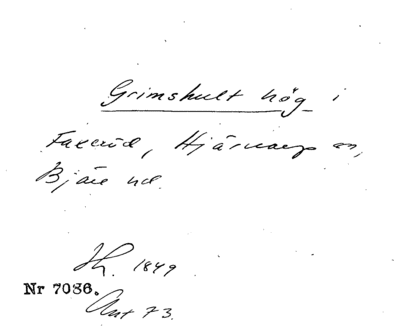 Grimshult hög i
Faxeröd, Hjärnarps sn,
Bjäre hd.
Th. 1849
Nr 7086.
Ant 73.